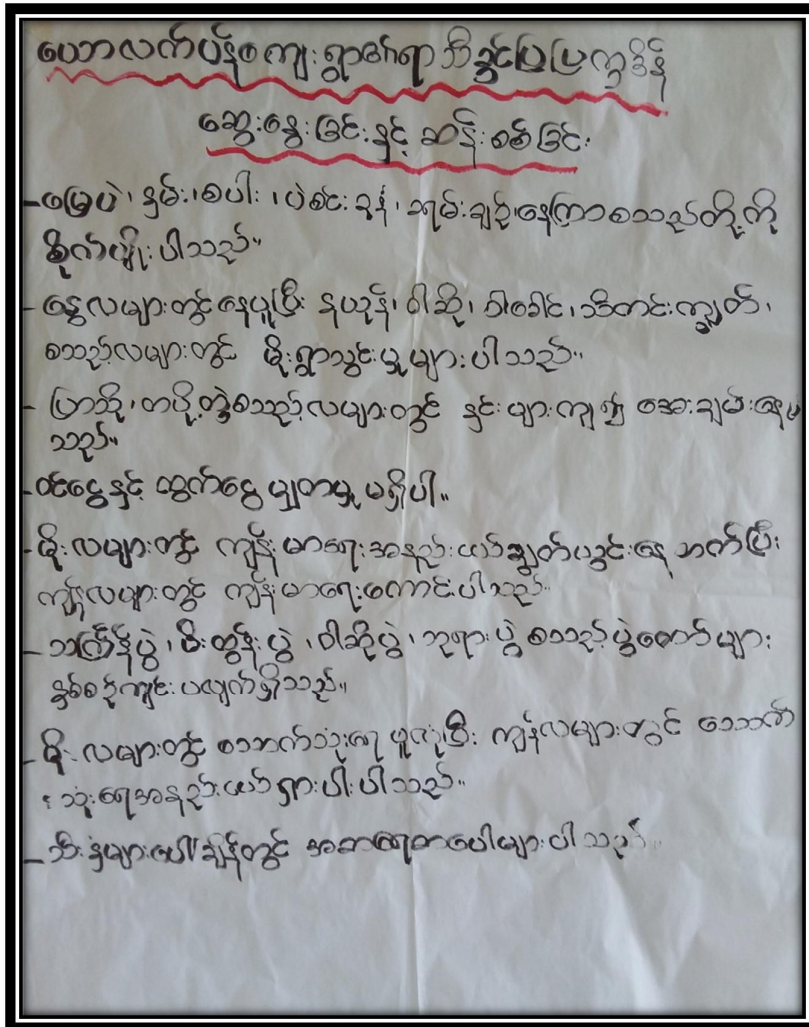 ယောလက်ပန်ကျေးရွာ၏ရာသီခွင်ပြပြက္ခဒိန်
ဆွေးနွေးခြင်းနှင့် ဆန်းစစ်ခြင်း
- မြေပဲ၊ နှမ်း၊ စပါး၊ ပဲစင်းငုံ၊ ကုလား၊ နေကြာစသည်တို့ကို
စိုက်ပျိုးပါသည်။
- နွေလများတွင်နေပူပြီး နယုန်၊ ဝါဆို၊ ဝါခေါင်၊ သီတင်းကျွတ်၊
စသည့်လများတွင် မိုးရွာသွင်းမှုများပါသည်။
- ပြာသို၊ တပို့တွဲစသည့်လများတွင် နှင်းများကျ၍ အေးချမ်း
သည်။
- ဝင်ငွေနှင့် ထွက်ငွေ မျှတမှု မရှိပါ။
- မိုးလများတွင် ကျန်းမာရေးအနည်းငယ်ချွတ်ယွင်းနေ တက်ပြီး
ကျန်လများတွင် ကျန်းမာရေးကောင်းပါသည်။
- သင်္ကြန်ပွဲ၊ မီးထွန်းပွဲ၊ ဝါဆိုပွဲ၊ ဘုရားပွဲ စသည့်ပွဲတော်များ
နှစ်စဉ်ကျင်းပလျက်ရှိသည်။
- မိုးလများတွင် သောက်သုံးရေ ဖူလုံပြီး ကျန်လများတွင် သောက်
သုံးရေအနည်းငယ် ရှားပါးပါသည်။
- သီးနှံများပေါ်ချိန်တွင် အစားရေစာပေါများပါသည်။